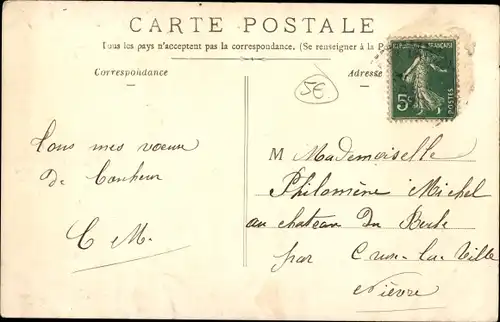 CARTE POSTALE
Tous les pays n'acceptent pas la correspondance. (Se renseigner à la P
Correspondance
Adresse
5€
RÉPUBLIQUE FRANÇAISE
5c
POSTES
Tous mes voeux
de bonheur
C M.
M Mademoiselle
Philomène Michel
au chateau du
par Crux-la-Ville
Nièvre